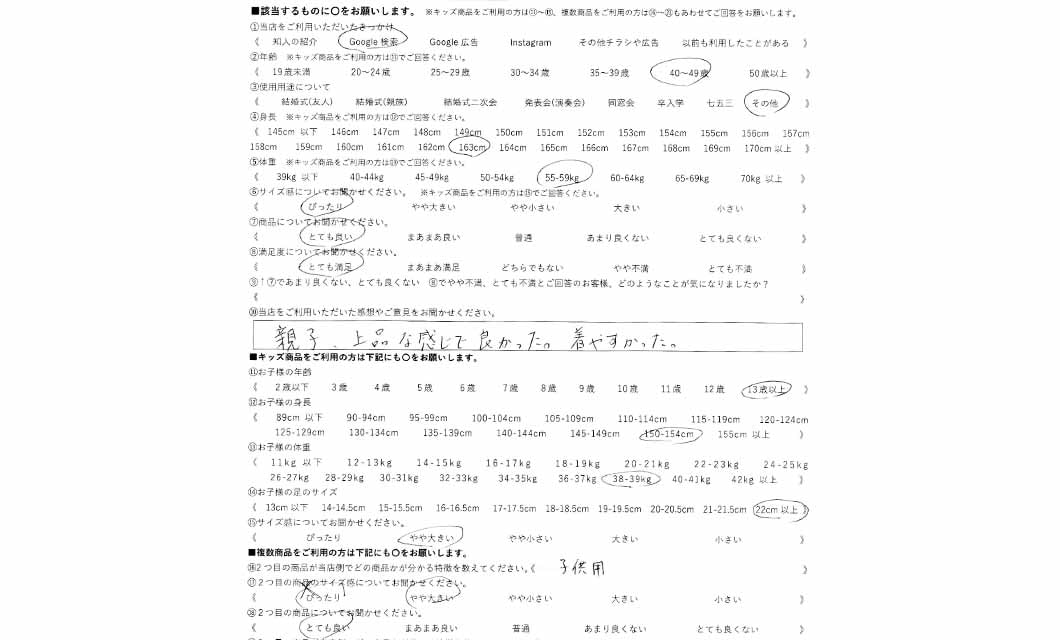 ■該当するものに〇をお願いします。 ※キッズ商品をご利用の方は⑪～⑮、複数商品をご利用の方は⑯～⑳もあわせてご回答をお願いします。
①当店をご利用いただいたきっかけ
《 知人の紹介 Google 検索 Google 広告 Instagram その他チラシや広告 以前も利用したことがある 》
②年齢 ※キッズ商品をご利用の方は⑪でご回答ください。
《 19歳未満 20～24歳 25～29歳 30～34歳 35～39歳 40～49歳 50歳以上 》
③使用用途について
《 結婚式(友人) 結婚式(親族) 結婚式二次会 発表会(演奏会) 同窓会 卒入学 七五三 その他 》
④身長 ※キッズ商品をご利用の方は⑫でご回答ください。
《 145cm 以下 146cm 147cm 148cm 149cm 150cm 151cm 152cm 153cm 154cm 155cm 156cm 157cm
158cm 159cm 160cm 161cm 162cm 163cm 164cm 165cm 166cm 167cm 168cm 169cm 170cm 以上 》
⑤体重 ※キッズ商品をご利用の方は⑬でご回答ください。
《 39kg 以下 40-44kg 45-49kg 50-54kg 55-59kg 60-64kg 65-69kg 70kg 以上 》
⑥サイズ感についてお聞かせください。 ※キッズ商品をご利用の方は⑮でご回答ください。
《 ぴったり やや大きい やや小さい 大きい 小さい 》
⑦商品についてお聞かせください。
《 とても良い まあまあ良い 普通 あまり良くない とても良くない 》
⑧満足度についてお聞かせください。
《 とても満足 まあまあ満足 どちらでもない やや不満 とても不満 》
⑨↑⑦であまり良くない、とても良くない ⑧でやや不満、とても不満とご回答のお客様、どのようなことが気になりましたか？
《 》
⑩当店をご利用いただいた感想やご意見をお聞かせください。
親子、上品な感じで良かった。着やすかった。
■キッズ商品をご利用の方は下記にも〇をお願いします。
⑪お子様の年齢
《 2歳以下 3歳 4歳 5歳 6歳 7歳 8歳 9歳 10歳 11歳 12歳 13歳以上 》
⑫お子様の身長
《 89cm 以下 90-94cm 95-99cm 100-104cm 105-109cm 110-114cm 115-119cm 120-124cm
125-129cm 130-134cm 135-139cm 140-144cm 145-149cm 150-154cm 155cm 以上 》
⑬お子様の体重
《 11kg 以下 12-13kg 14-15kg 16-17kg 18-19kg 20-21kg 22-23kg 24-25kg
26-27kg 28-29kg 30-31kg 32-33kg 34-35kg 36-37kg 38-39kg 40-41kg 42kg 以上 》
⑭お子様の足のサイズ
《 13cm 以下 14-14.5cm 15-15.5cm 16-16.5cm 17-17.5cm 18-18.5cm 19-19.5cm 20-20.5cm 21-21.5cm 22cm 以上 》
⑮サイズ感についてお聞かせください。
《 ぴったり やや大きい やや小さい 大きい 小さい 》
■複数商品をご利用の方は下記にも〇をお願いします。
⑯2つ目の商品が当店側でどの商品かが分かる特徴を教えてください。《 子供用
⑰2つ目の商品のサイズ感についてお聞かせください。
《 ぴったり やや大きい やや小さい 大きい 小さい 》
⑱2つ目の商品についてお聞かせください。
《 とても良い まあまあ良い 普通 あまり良くない とても良くない 》